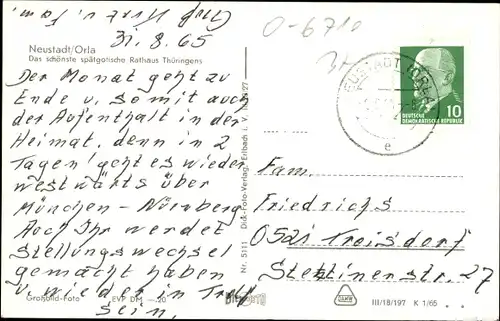 O-6710
31.8.65
Neustadt/Orla
Das schönste spätgotische Rathaus Thüringens
Der Monat geht zu
Ende u. somit auch
der Aufenthalt in der
Heimat, denn in 2
Tagen geht es wieder
westwärts über
München - Nürnberg
Auch Ihr werdet
Stellungswechsel
gemacht haben
u. wieder in
sein.
Großbild-Foto EVP DM —.20
Nr. 5111 Dick-Foto-Verlag, Erlbach i. V.
NEUSTADT (ORLA)
e
10
DEUTSCHE
DEMOKRATISCHE REPUBLIK
Fam.
Friedrichs
0521 Troisdorf
Stettinerstr. 27
III/18/197 K 1/65